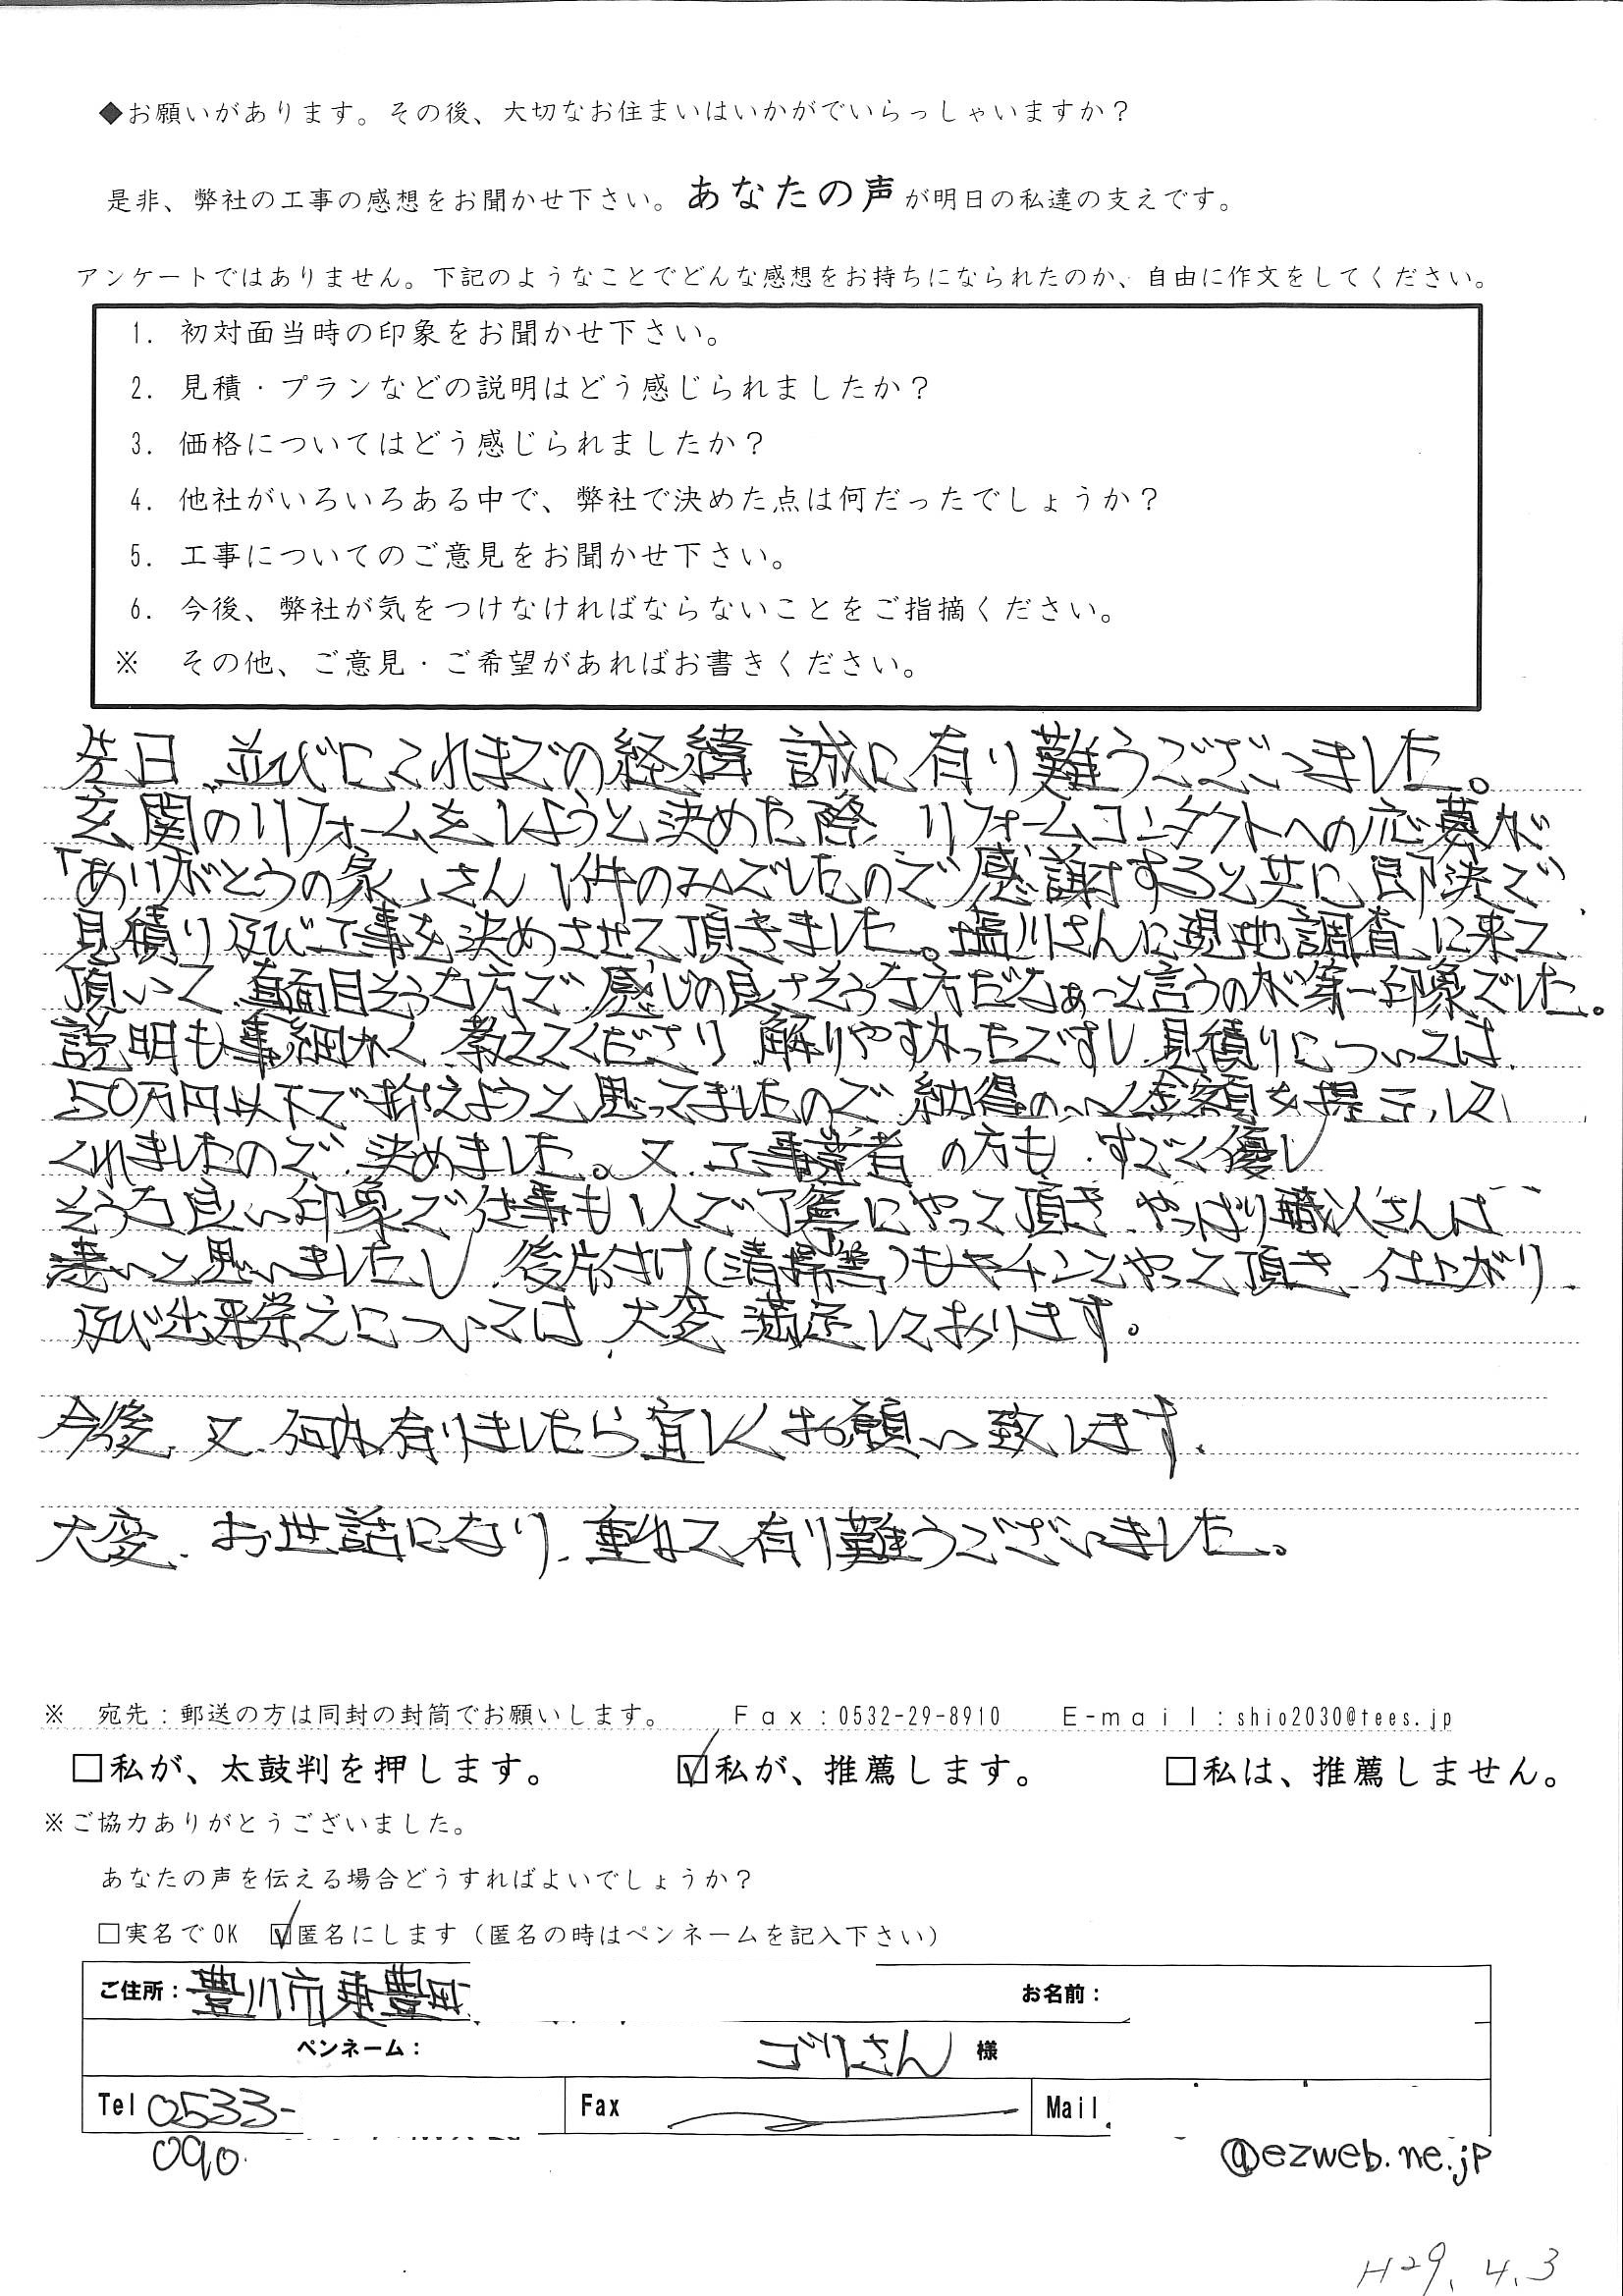 ◆お願いがあります。その後、大切なお住まいはいかがでいらっしゃいますか？
是非、弊社の工事の感想をお聞かせ下さい。あなたの声が明日の私達の支えです。
アンケートではありません。下記のようなことでどんな感想をお持ちになられたのか、自由に作文をしてください。
1. 初対面当時の印象をお聞かせ下さい。
2. 見積・プランなどの説明はどう感じられましたか？
3. 価格についてはどう感じられましたか？
4. 他社がいろいろある中で、弊社で決めた点は何だったでしょうか？
5. 工事についてのご意見をお聞かせ下さい。
6. 今後、弊社が気をつけなければならないことをご指摘ください。
※ その他、ご意見・ご希望があればお書きください。
先日、並びにこれまでの経緯 誠に有り難うございました。
玄関のリフォームをしようと決めた際、リフォームコンタクトへの応募が
「ありがとうの家」さん 1件のみでしたので感謝すると共に、即決で
見積り及び工事を決めさせて頂きました。塩川さんに現地調査に来て
頂いて、真面目そうな方で、感じの良さそうな方だなぁーと言うのが第一印象でした。
説明も事細かく、教えてくださり、解りやすかったですし、見積りについては、
50万円以下で抑えようと思ってましたので、納得のいく金額を提示して
くれましたので、決めました。又、工事業者の方も、すごく優し
そうな良い印象で仕事も1人で丁寧にやって頂き、やっぱり職人さんは
凄いと思いましたし、後片付け(清掃等)もキチンとやって頂き、仕上がり
及び出来栄えについては、大変、満足しております。
今後、又、何か有りましたら宜しくお願い致します、
大変、お世話になり、重ねて、有り難うございました。
※ 宛先：郵送の方は同封の封筒でお願いします。 Fax：0532-29-8910 E-mail：shio2030@tees.jp
□私が、太鼓判を押します。 ☑私が、推薦します。 □私は、推薦しません。
※ご協力ありがとうございました。
あなたの声を伝える場合どうすればよいでしょうか？
□実名でOK ☑匿名にします（匿名の時はペンネームを記入下さい）
ご住所：豊川市東豊町 お名前：
ペンネーム： ゴリさん 様
Tel 0533- Fax Mail
090
@ezweb.ne.jp
H29.4.3